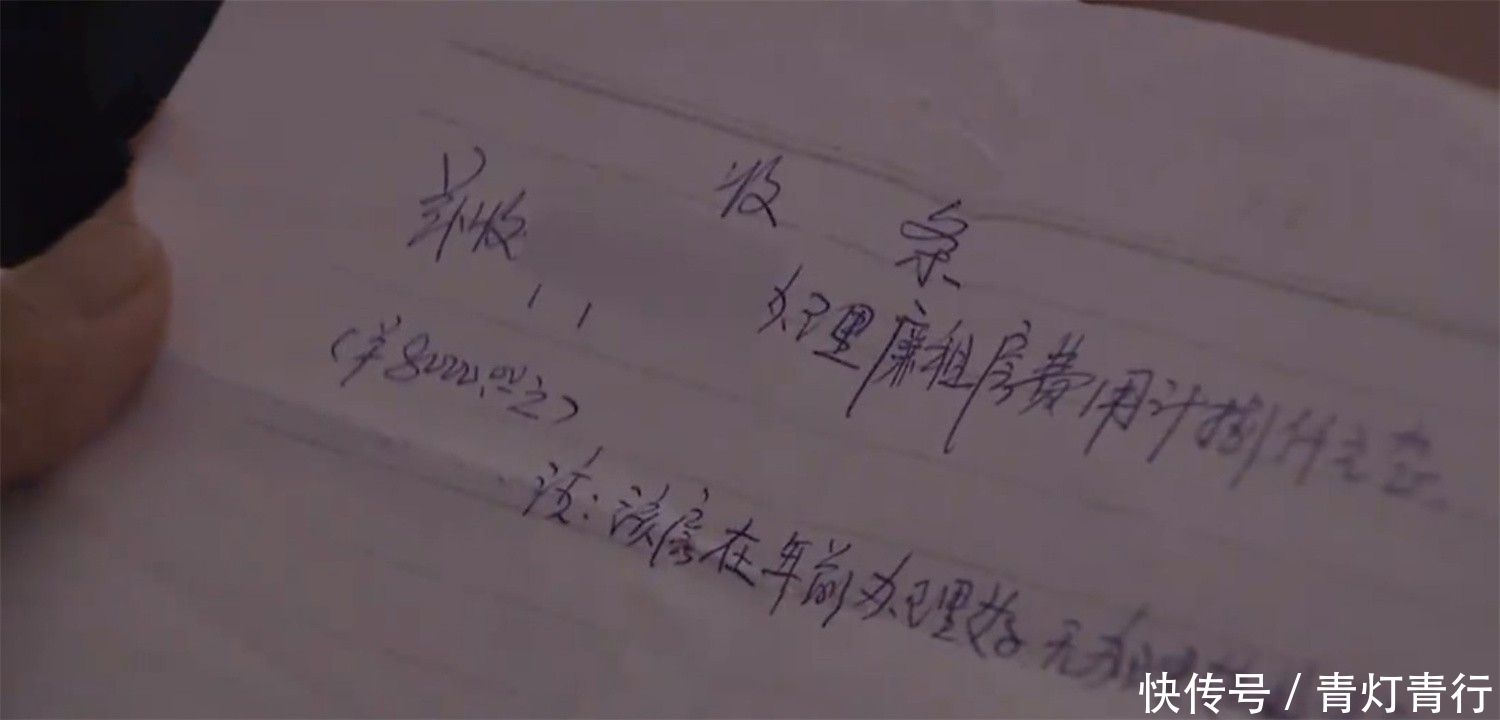 收 条
兹收 办理廉租房费用计捌仟元整.
(￥8000.00元)
注:该房在年前办理好无
快传号 / 青灯青行